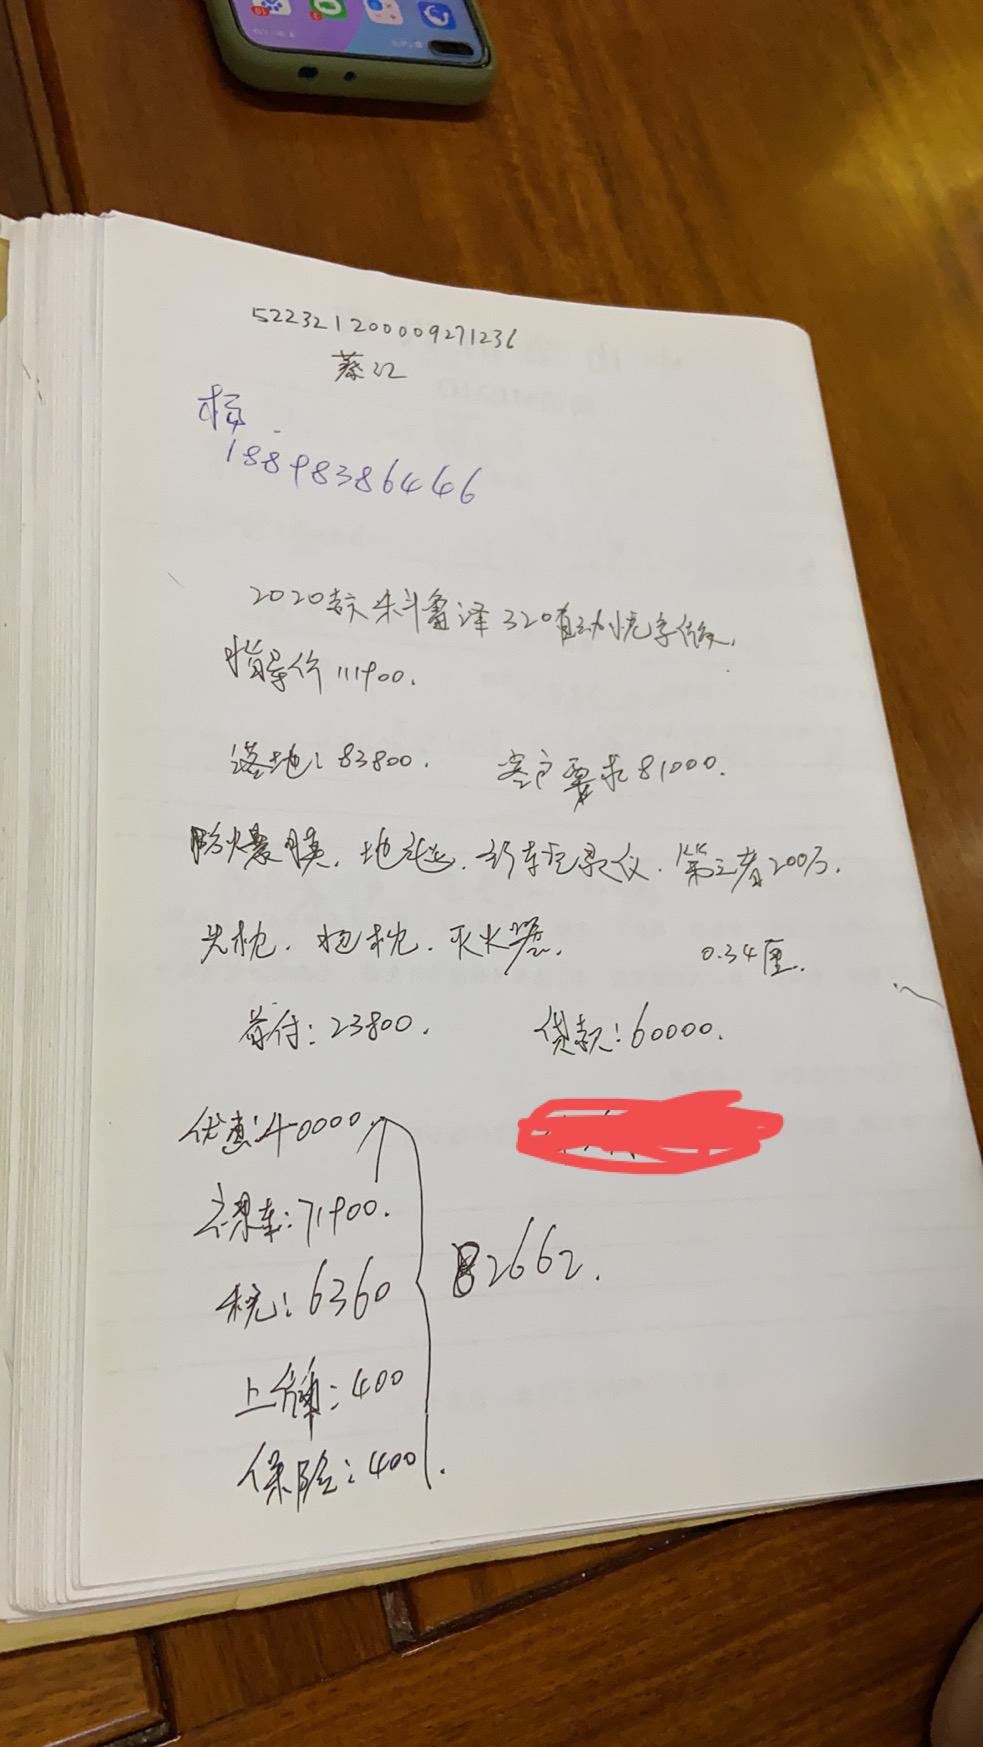 522321200009271236
蔡江
杨
18898386446
2020款科鲁泽320自动悦享版.
指导价111900.
落地:83800. 客户要求81000.
防爆膜.地毯.行车记录仪.第三者200万.
头枕.抱枕.灭火器. 0.34厘.
首付:23800. 贷款:60000.
优惠:40000
裸车:71900.
82662.
税:6360
上牌:400
保险:400